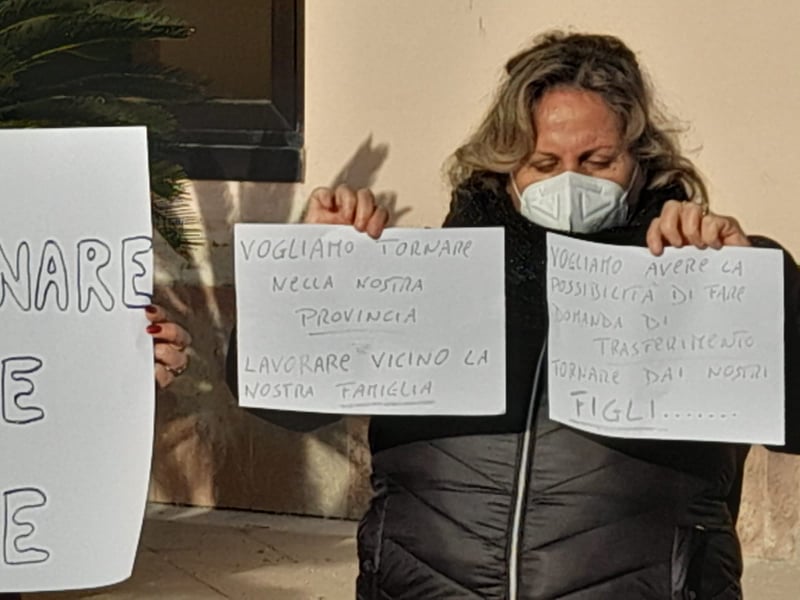 NARE
E
E
VOGLIAMO TORNARE
NELLA NOSTRA
PROVINCIA
LAVORARE VICINO LA
NOSTRA FAMIGLIA
VOGLIAMO AVERE LA
POSSIBILITÀ DI FARE
DOMANDA DI
TRASFERIMENTO
TORNARE DAI NOSTRI
FIGLI.......